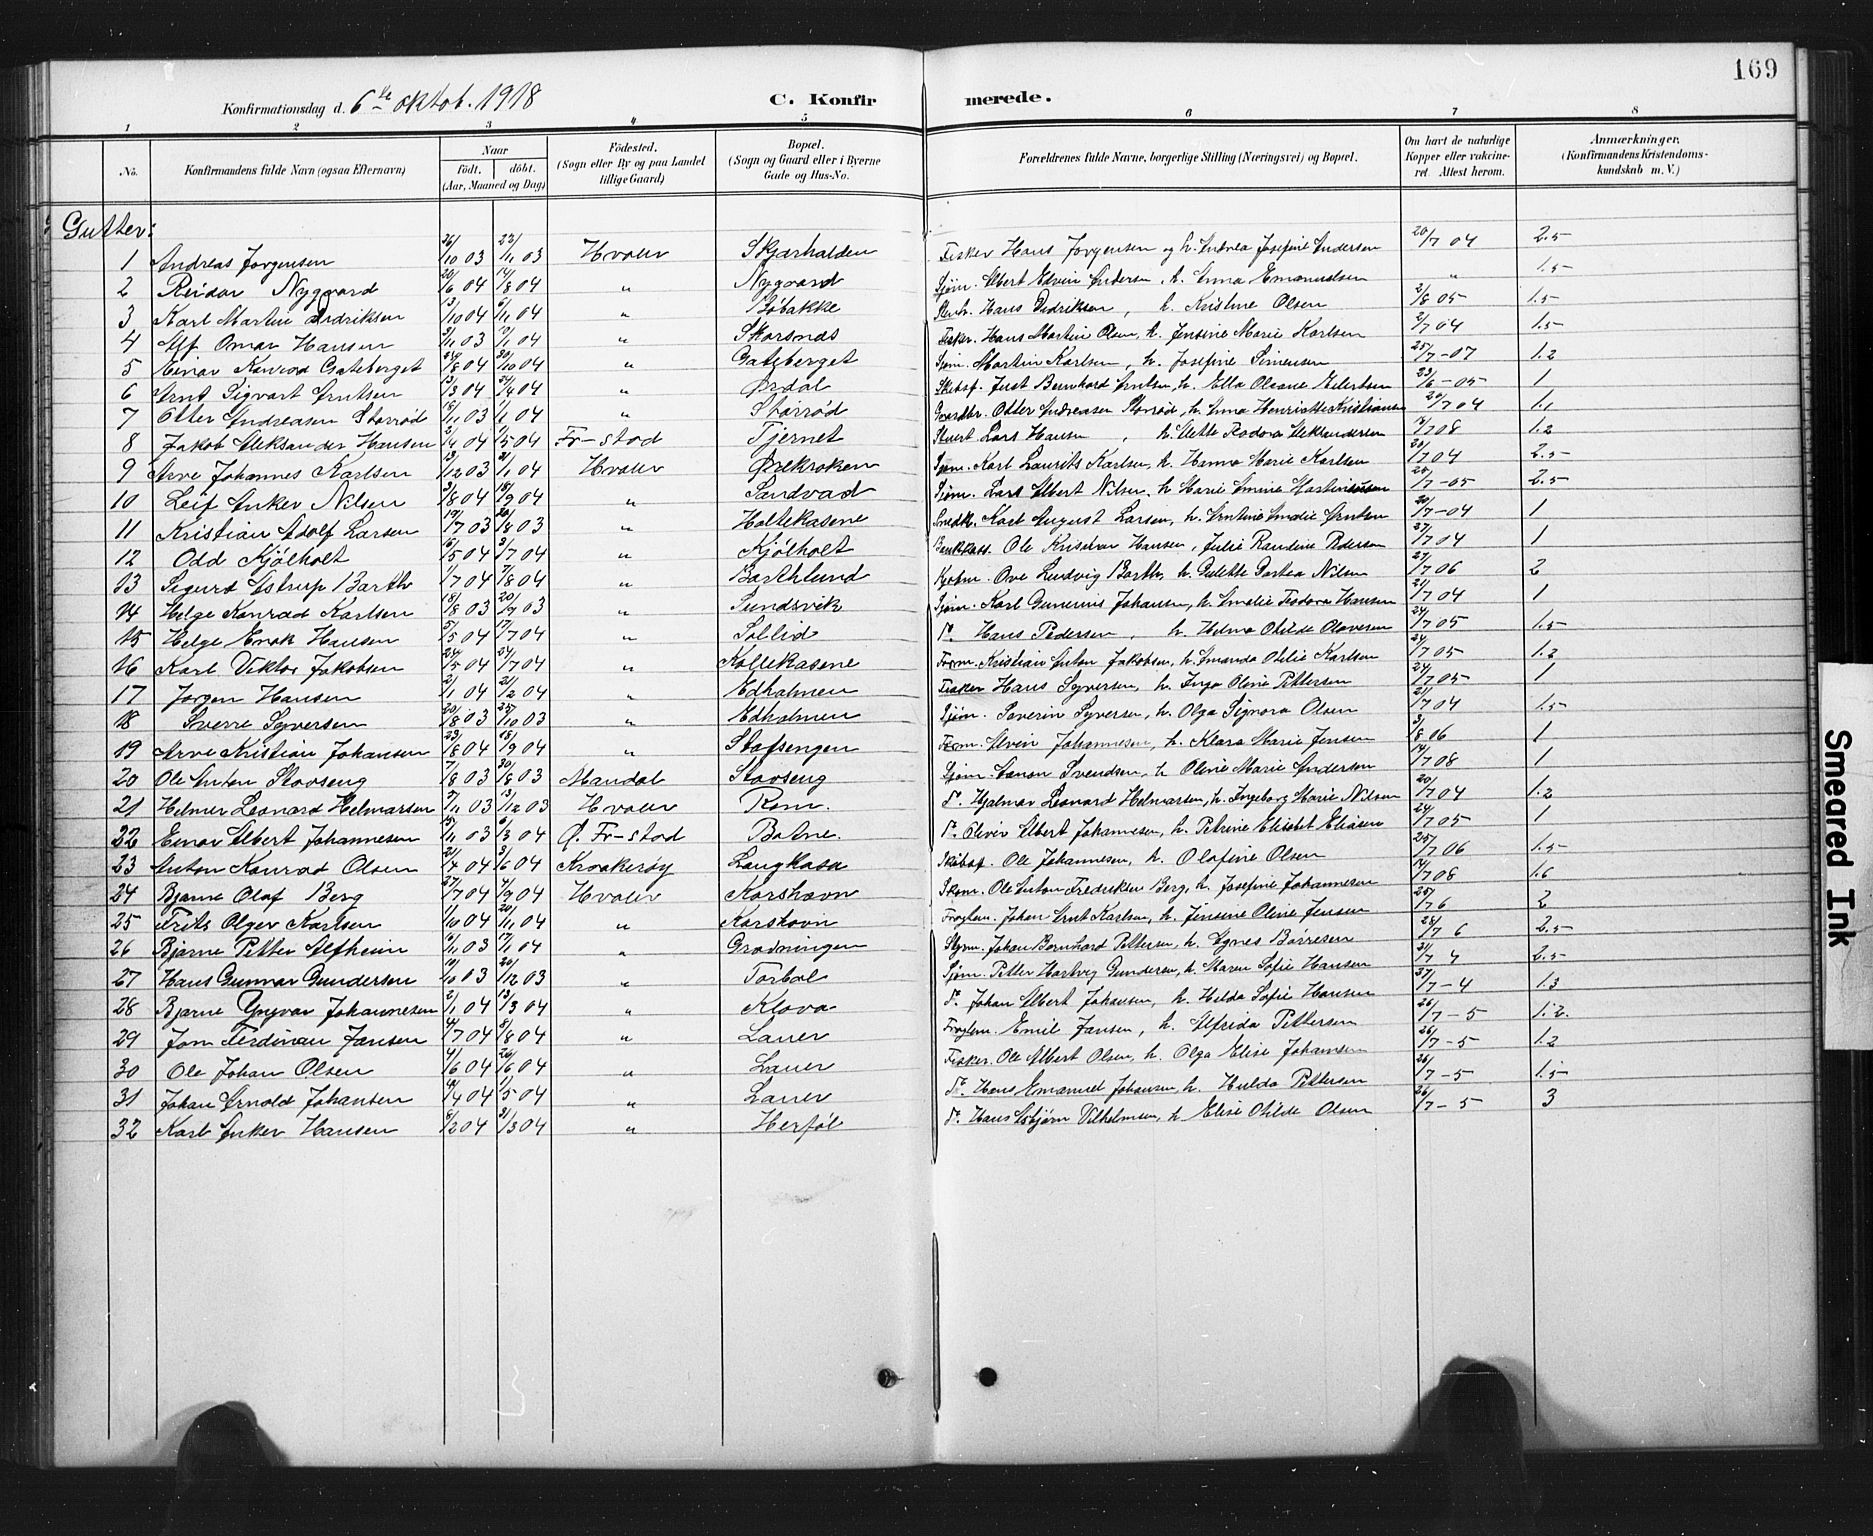 169
Konfirmationsdag d. 6te oktob. 1918 C. Konfirmerede.
1 2 3 4 5 6 7 8
No. Konfirmandens fulde Navn (ogsaa Efternavn) Naar født. døbt. (Aar, Maaned og Dag) Fødested. (Sogn eller By og paa Landet tillige Gaard) Bopæl. (Sogn og Gaard eller i Byerne Gade og Hus-No. Forældrenes fulde Navne, borgerlige Stilling (Næringsvei) og Bopæl. Om havt de naturlige Kopper eller vaccineret. Attest herom. Anmærkninger. (Konfirmandens Kristendomskundskab m. V.)
Gutter:
1 Andreas Jørgensen 26/10 03 22/11 03 Hvaler Skjærhalden Fisker Hans Jørgensen og h. Andrea Josefine Andersen 20/7 04 2.5
2 Reidar Nygaard 20/6 04 14/8 04 " Nygaard Sjøm. Albert Edvin Andersen, h. Anna Emanuelsen " 1.5
3 Karl Martin Didriksen 13/10 04 6/11 04 " Bøbakke Stenh. Hans Didriksen, h. Kristine Olsen 2/8 05 1.5
4 Alf Omar Hansen 3/11 03 17/1 04 " Skarsnds Fisker. Hans Martin Olsen, h. Jensine Marie Karlsen 2/7 04 1.5
5 Einar Konrad Gateberget 24/8 04 30/10 04 " Gateberget Sjøm. Martin Karlsen, h. Josefine Simensen 25/7-07 1.2
6 Arnt Sigvart Arntsen 13/3 04 24/4 04 " Ørdal Skibsf. Just Bernhard Arntsen, h. Ella Olsane Eilertsen 23/6-05 1
7 Otter Andreasen Storrød 18/11 03 1/1 04 " Storrød Gaardbr. Otter Andreasen Storrød, h. Anna Henriette Kristiansen 20/7 04 1.1
8 Jakob Aleksander Hansen 2/4 04 1/5 04 Fr-stad Tjernet Stuert Lars Hansen, h. Mette Teodora Aleksandersen 14/7 08 1.2
9 Arve Johannes Karlsen 13/12 03 31/1 04 Hvaler Ørekroken Sjøm. Karl Laurits Karlsen, h. Hanna Marie Karlsen 20/7 04 2.5
10 Leif Anker Nilsen 3/8 04 18/9 04 " Sandvad Sjøm. Lars Albert Nilsen, h. Marie Amine Martiniussen 20/7-05 2.5
11 Kristian Adolf Larsen 19/7 03 20/8 03 " Holtekasene Snedk. Karl August Larsen, h. Arntine Amalie Arntsen 20/7-04 1
12 Odd Kjølholt 16/5 04 3/7 04 " Kjølholt Bankkass. Ole Kristian Hansen, Julie Randine Pedersen 27/7 04 1
13 Sigurd Astrup Barth 1/7 04 7/8 04 " Barthlund Kjøbm. Ove Ludvig Barth, h. Gulette Dortea Nilsen 27/7 06 2
14 Helge Konrad Karlsen 18/8 03 20/9 03 " Sundsvik Sjøm. Karl Gunerius Johansen, h. Amalie Teodora Hansen 21/7 04 1
15 Helge Enok Hansen 5/5 04 17/7 04 " Sollid Do. Hans Pedersen, h. Helma Otilde Olavesen 24/7 05 1.5
16 Karl Viktor Jakobsen 24/5 04 24/7 04 " Kollekasene Tørm. Kristian Anton Jakobsen, h. Amanda Otilie Karlsen 24/7 05 1.2
17 Jørgen Hansen 2/1 04 21/2 04 " Edholmen Fisker Hans Syversen, h. Inga Oline Pettersen 24/7 05 1
18 Sverre Syversen 20/8 03 25/10 03 " Edholmen Sjøm. Severin Syversen, h. Olga Signora Olsen 21/7 04 1.5
19 Arve Kristian Johansen 23/8 04 18/9 04 " Stafsengen Tørm. Alvin Johannesen, h. Klara Marie Jensen 3/8 06 1
20 Ole Anton Stavseng 7/8 03 30/8 03 Mandal Stavseng Sjøm. Canon Svendsen, h. Oline Marie Andersen 14/7 08 1
21 Helmer Leonard Helmarsen 7/11 03 13/12 03 Hvaler Rom. Do. Hjalmar Leonard Helmarsen, h. Ingeborg Marie Nilsen 20/7 04 1.2
22 Einar Albert Johannesen 15/11 03 6/3 04 Ø. Fr-stad Botne. Do. Oliver Albert Johannesen, h. Petrine Elisabet Eliasen 24/7 05 1
23 Anton Konrad Olsen 21/4 04 3/6 04 Kraakerøy Langkasa Skibsf. Ole Johannesen, h. Olafine Olsen 25/7 06 1.5
24 Bjarne Olaf Berg 27/7 04 4/9 04 Hvaler Korshavn Skom. Ole Anton Fredriksen Berg, h. Josefine Johannesen 14/7 08 1.6
25 Frits Olger Karlsen 1/10 04 20/11 04 " Korshavn Frogtem. Johan Arnt Karlsen, h. Jensine Oline Jensen 25/7 6 2
26 Bjarne Petter Alfheim 16/11 03 17/1 04 " Gravningen Styrm. Johan Bernhard Pettersen, h. Agnes Børresen 24/7 6 2.5
27 Hans Gunnar Gundersen 19/10 03 20/12 03 " Torbal Sjøm. Petter Hartvig Gundersen, h. Maren Sofie Hansen 21/7 4 2.5
28 Bjarne Yngvar Johannesen 2/1 04 13/3 04 " Kløva Do. Johan Albert Johansen, h. Helda Sofie Hansen 27/7-4 1.3
29 Jom Ferdinan Jansen 4/7 04 3/8 04 " Lauer Frogtem. Emil Jansen, h. Alfrida Pettersen 26/7-5 1.2.
30 Ole Johan Olsen 4/6 04 26/6 04 " Lauer Fisker. Ole Albert Olsen, h. Olga Elise Johansen 26/7-5 1.2
31 Johan Arnold Johansen 4/4 04 1/5 04 " Lauer Do. Hans Emanuel Johansen, h. Hulda Pettersen 26/7-5 1.5
32 Karl Anker Hansen 8/2 04 21/3 04 " Herføl Do. Hans Asbjørn Vilhelmsen, h. Elise Otilde Olsen 26/7-5 3
Smeared Ink